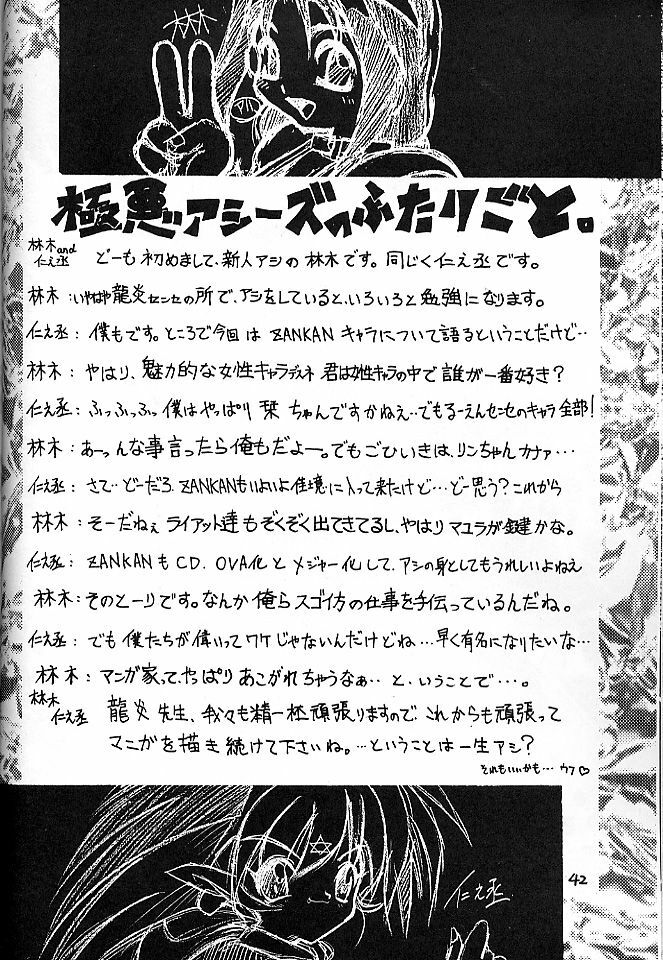 林木
極悪アシーズのふたりごと。
林木and仁え丞 どーも初めまして、新人アシの林木です。同じく仁え丞です。
林木：いやはや龍炎センセの所で、アシをしていると、いろいろと勉強になります。
仁え丞：僕もです。ところで今回はZANKANキャラについて語るということだけど…
林木：やはり、魅力的な女性キャラデスネ 君は女性キャラの中で誰が一番好き？
仁え丞：ふっふっふっ僕はやっぱり栞ちゃんですかねえ…でもるーえんセンセのキャラ全部！
林木：あーっんな事言ったら俺もだよー。でもごひいきは、リンちゃんカナァ…
仁え丞：さてーどーだろ、ZANKANもいよいよ佳境に入って来たけど…どー思う？これから
林木：そーだねぇ ライアット達もぞくぞく出てきてるし、やはりマユラが鍵かな。
仁え丞：ZANKANもCD、OVA化とメジャー化して、アシの身としてもうれしいよねえ
林木：そのとーりです。なんか俺らスゴイ方の仕事を手伝っているんだね。
仁え丞：でも僕たちが偉いってワケじゃないんだけどね…早く有名になりたいな…
林木：マンガ家って、やっぱりあこがれちゃうなぁ…と、いうことで…。
林木 仁え丞 龍炎先生、我々も精一杯頑張りますので、これからも頑張って
マンガを描き続けて下さいね。…ということは一生アシ？
それもいいかも…ウフ♡
仁え丞
42